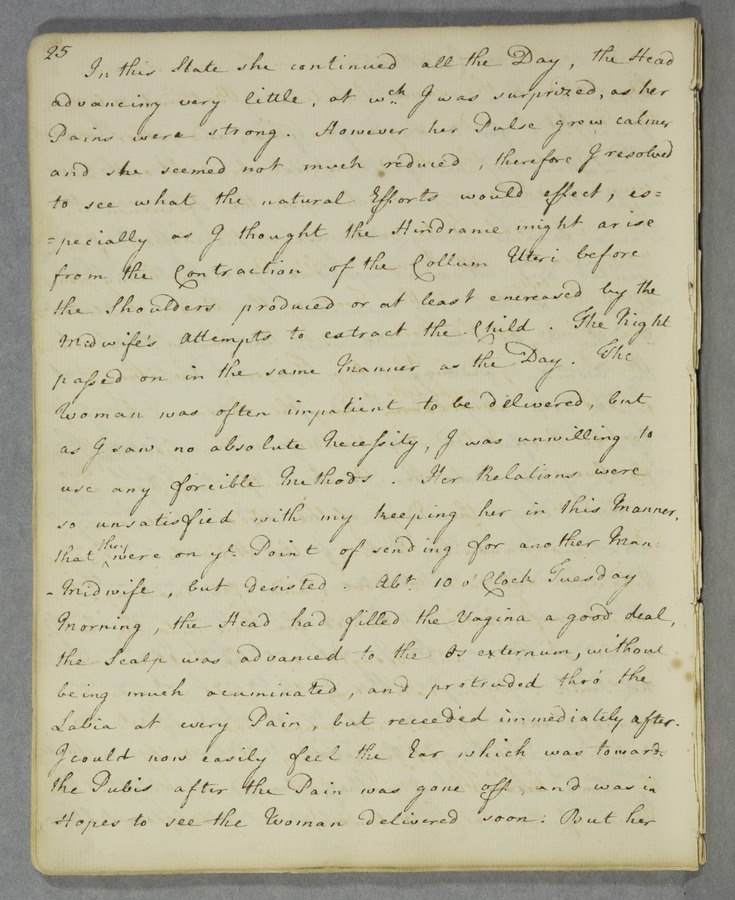 25
In this State she continued all the Day, the Head
advancing very little, at wch I was surprized, as her
Pains were strong. However her Pulse grew calmer
and she seemed not much reduced, therefore I resolved
to see what the natural Efforts would effect, es=
=pecially as I thought the Hindrance might arise
from the Contraction of the Collum Uteri before
the Shoulders produced or at least encreased by the
Midwife's attempts to extract the Child. The Night
passed on in the same Manner as the Day. The
Woman was often impatient to be delivered, but
as I saw no absolute Necessity, I was unwilling to
use any forcible Methods. Her Relations were
so unsatisfied with my keeping her in this Manner,
that they were on ye. Point of sending for another Man
-Midwife, but desisted. Abt. 10 o'Clock Tuesday
Morning, the Head had filled the Vagina a good deal,
the Scalp was advanced to the Os externum, without
being much acuminated, and protruded thro' the
Labia at every Pain, but receeded immediately after.
I could now easily feel the Ear which was towards
the Pubis after the Pain was gone off, and was in
Hopes to see the Woman delivered soon: But her